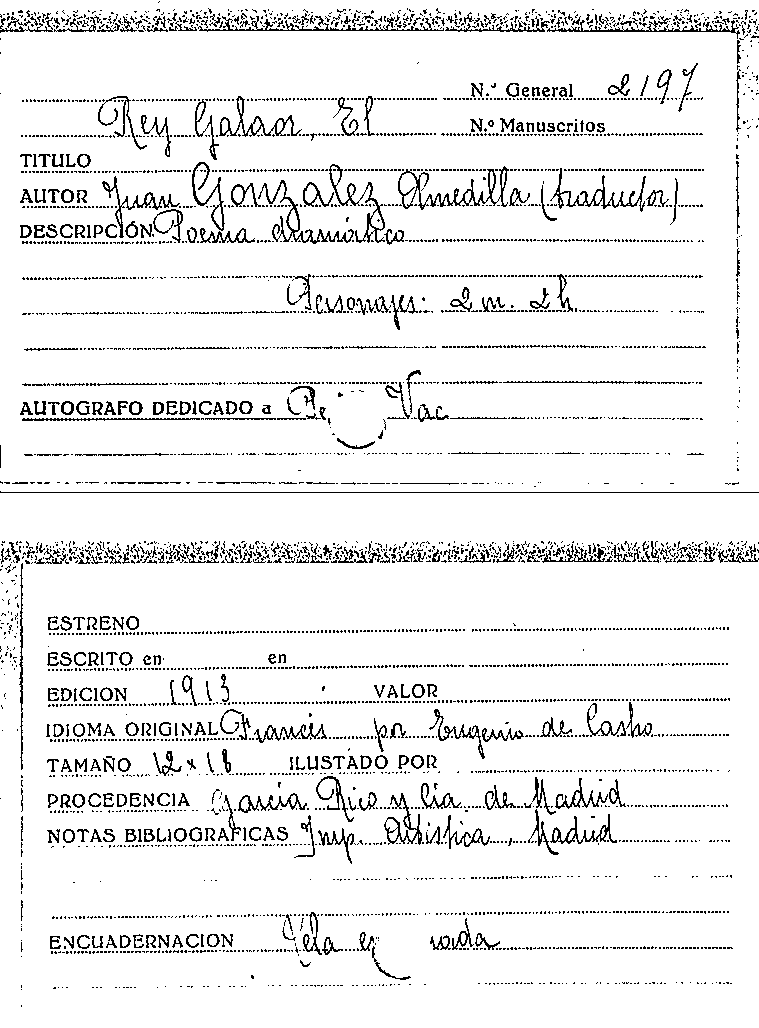 N.º General 2197
Rey Galaor, El N.º Manuscritos
TITULO
AUTOR Juan Gonzalez Olmedilla (traductor)
DESCRIPCIÓN Poema dramático
Personajes: 2 m. 2 h.
AUTOGRAFO DEDICADO a
ESTRENO
ESCRITO en en
EDICION 1913 VALOR
IDIOMA ORIGINAL Francés por Eugenio de Castro
TAMAÑO 12 x 18 ILUSTADO POR
PROCEDENCIA García Rico y Cía. de Madrid
NOTAS BIBLIOGRAFICAS Imp. Artística, Madrid
ENCUADERNACION Tela